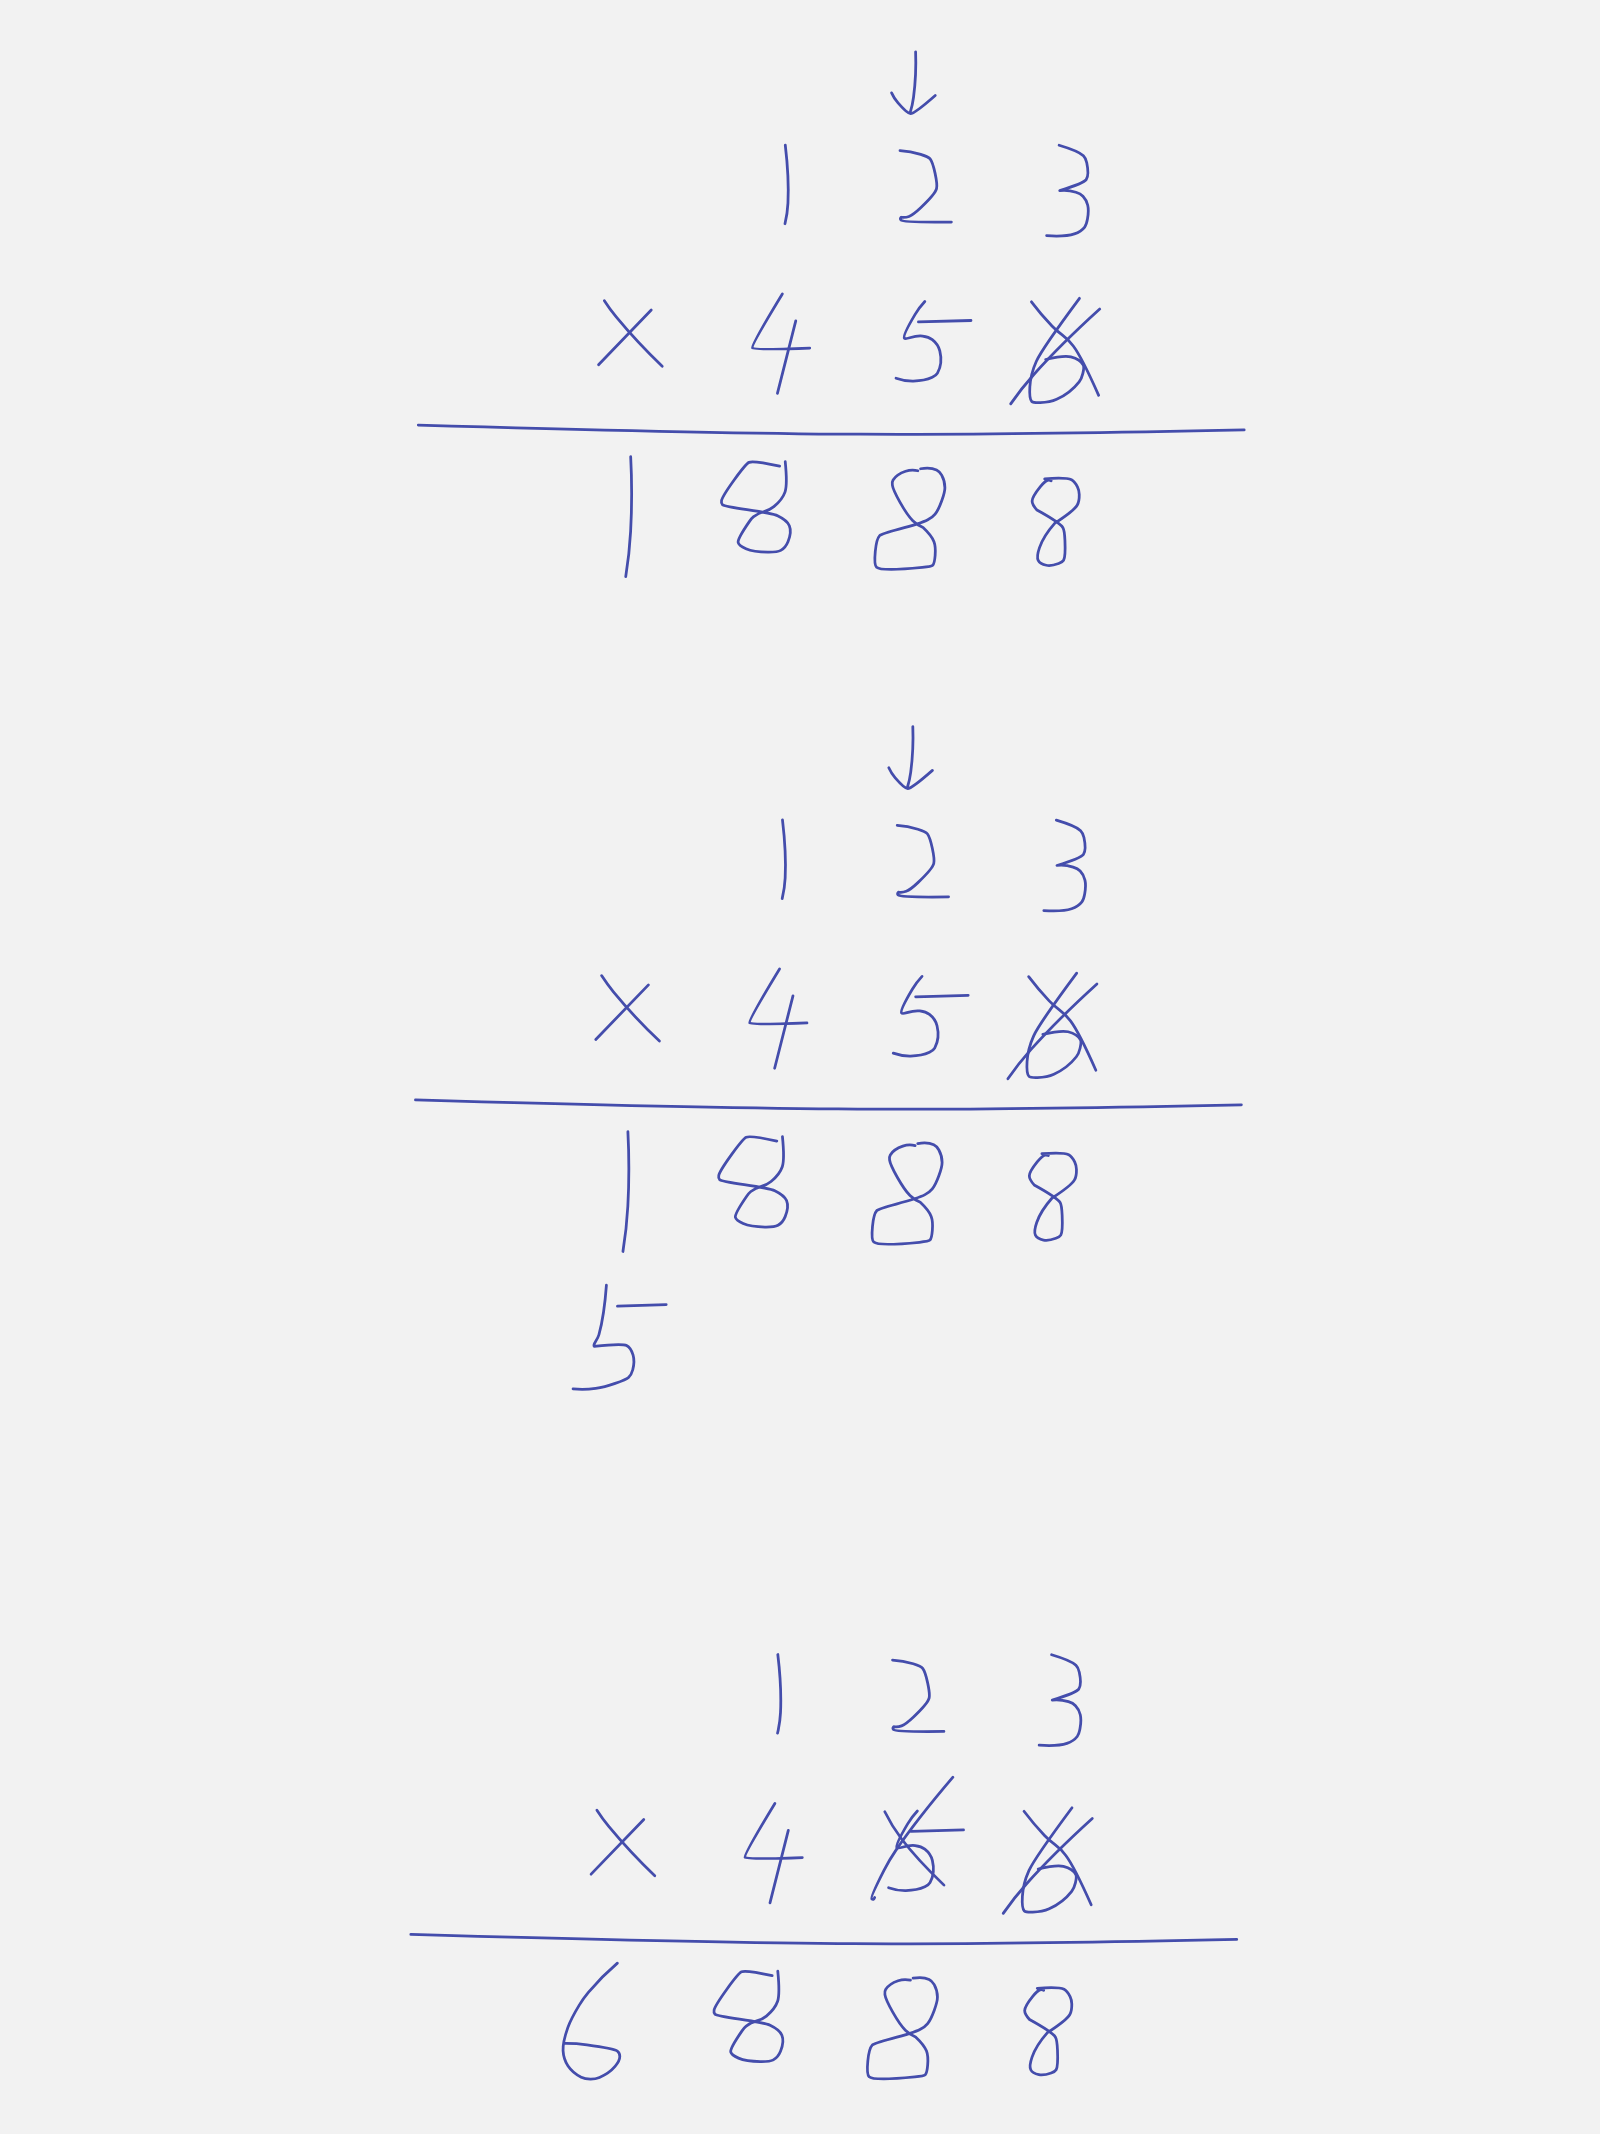 ↓
1 2 3
× 4 5 6
1 8 8 8
↓
1 2 3
× 4 5 6
1 8 8 8
5
1 2 3
× 4 5 6
6 8 8 8